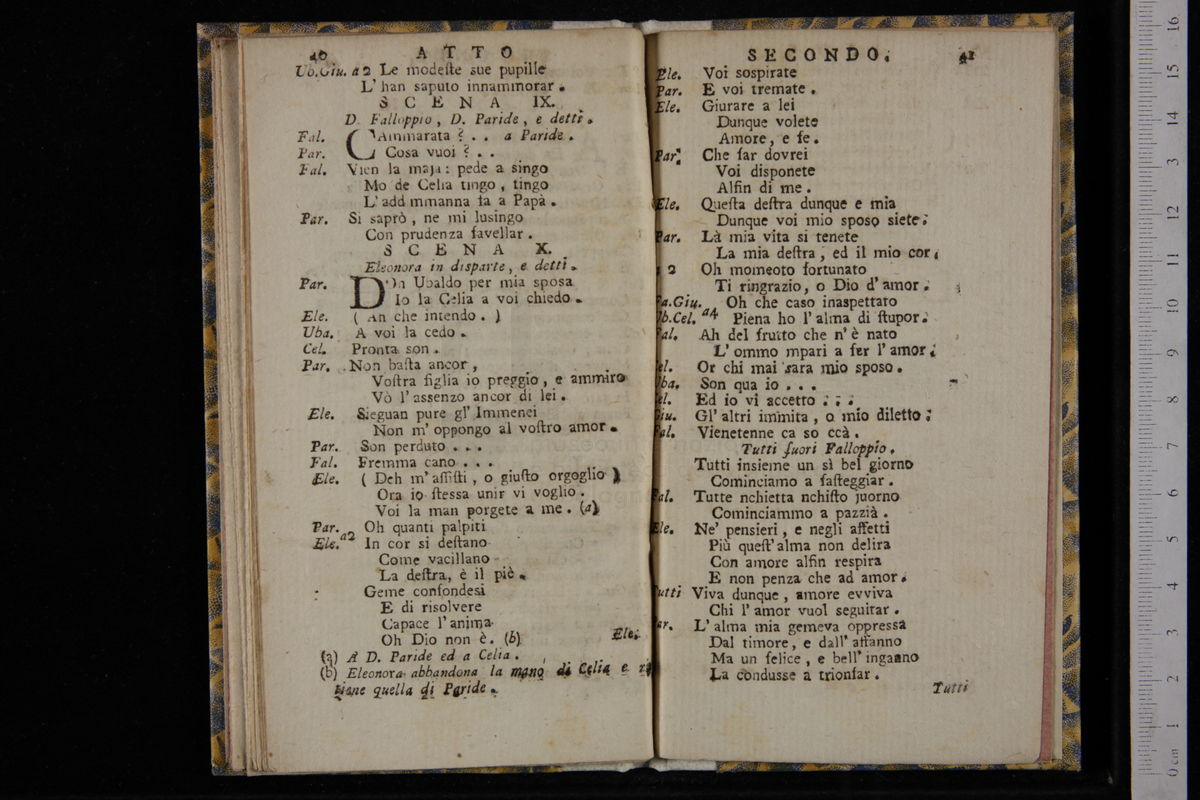 40 ATTO
Ub.Giu. a2 Le modeſte sue pupille
L' han saputo innammorar.
SCENA IX.
D. Falloppio, D. Paride, e detti.
Fal. CAmmarata ? . . a Paride.
Par. Cosa vuoi ? . .
Fal. Vien la maja: pede a singo
Mo de Celia tingo, tingo
L' add mmanna fa a Papà.
Par. Si saprò, ne mi lusingo
Con prudenza favellar.
SCENA X.
Eleonora in disparte, e detti.
Par. DOn Ubaldo per mia sposa
Io la Celia a voi chiedo.
Ele. ( An che intendo. )
Uba. A voi la cedo.
Cel. Pronta son.
Par. Non baſta ancor,
Voſtra figlia io preggio, e ammiro
Vò l' assenzo ancor di lei.
Ele. Sieguan pure gl' Immenei
Non m' oppongo al voſtro amor.
Par. Son perduto . . .
Fal. Fremma cano . . .
Ele. ( Deh m' aſſiſti, o giuſto orgoglio )
Ora io ſtessa unir vi voglio.
Voi la man porgete a me. (a)
Par. Oh quanti palpiti
Ele. a2 In cor si deſtano
Come vacillano
La deſtra, è il piè.
Geme confondesi
E di risolvere
Capace l' anima
Oh Dio non è. (b)
Ele.
(a) A D. Paride ed a Celia.
(b) Eleonora abbandona la mano di Celia e ri
tiene quella di Paride.
SECONDO. 41
Ele. Voi sospirate
Par. E voi tremate.
Ele. Giurare a lei
Dunque volete
Amore, e fe.
Par. Che far dovrei
Voi disponete
Alfin di me.
Ele. Queſta deſtra dunque e mia
Dunque voi mio sposo siete.
Par. Là mia vita si tenete
La mia deſtra, ed il mio cor.
a 2 Oh momeoto fortunato
Ti ringrazio, o Dio d' amor.
Pa.Giu. Oh che caso inaspettato
Ub.Cel. a4 Piena ho l' alma di ſtupor.
Fal. Ah del frutto che n' è nato
L' ommo mpari a fer l' amor.
Cel. Or chi mai sara mio sposo.
Uba. Son qua io . . .
Cel. Ed io vi accetto . . .
Giu. Gl' altri immita, o mio diletto.
Fal. Vienetenne ca so ccà.
Tutti fuori Falloppio.
Tutti insieme un sì bel giorno
Cominciamo a faſteggiar.
Fal. Tutte nchietta nchiſto juorno
Cominciammo a pazzià.
Ele. Ne' pensieri, e negli affetti
Più queſt' alma non delira
Con amore alfin respira
E non penza che ad amor.
Tutti Viva dunque, amore evviva
Chi l' amor vuol seguitar.
Par. L' alma mia gemeva oppressa
Dal timore, e dall' affanno
Ma un felice, e bell' ingaano
La condusse a trionfar.
Tutti
0 cm 1 2 3 4 5 6 7 8 9 10 11 12 13 14 15 16